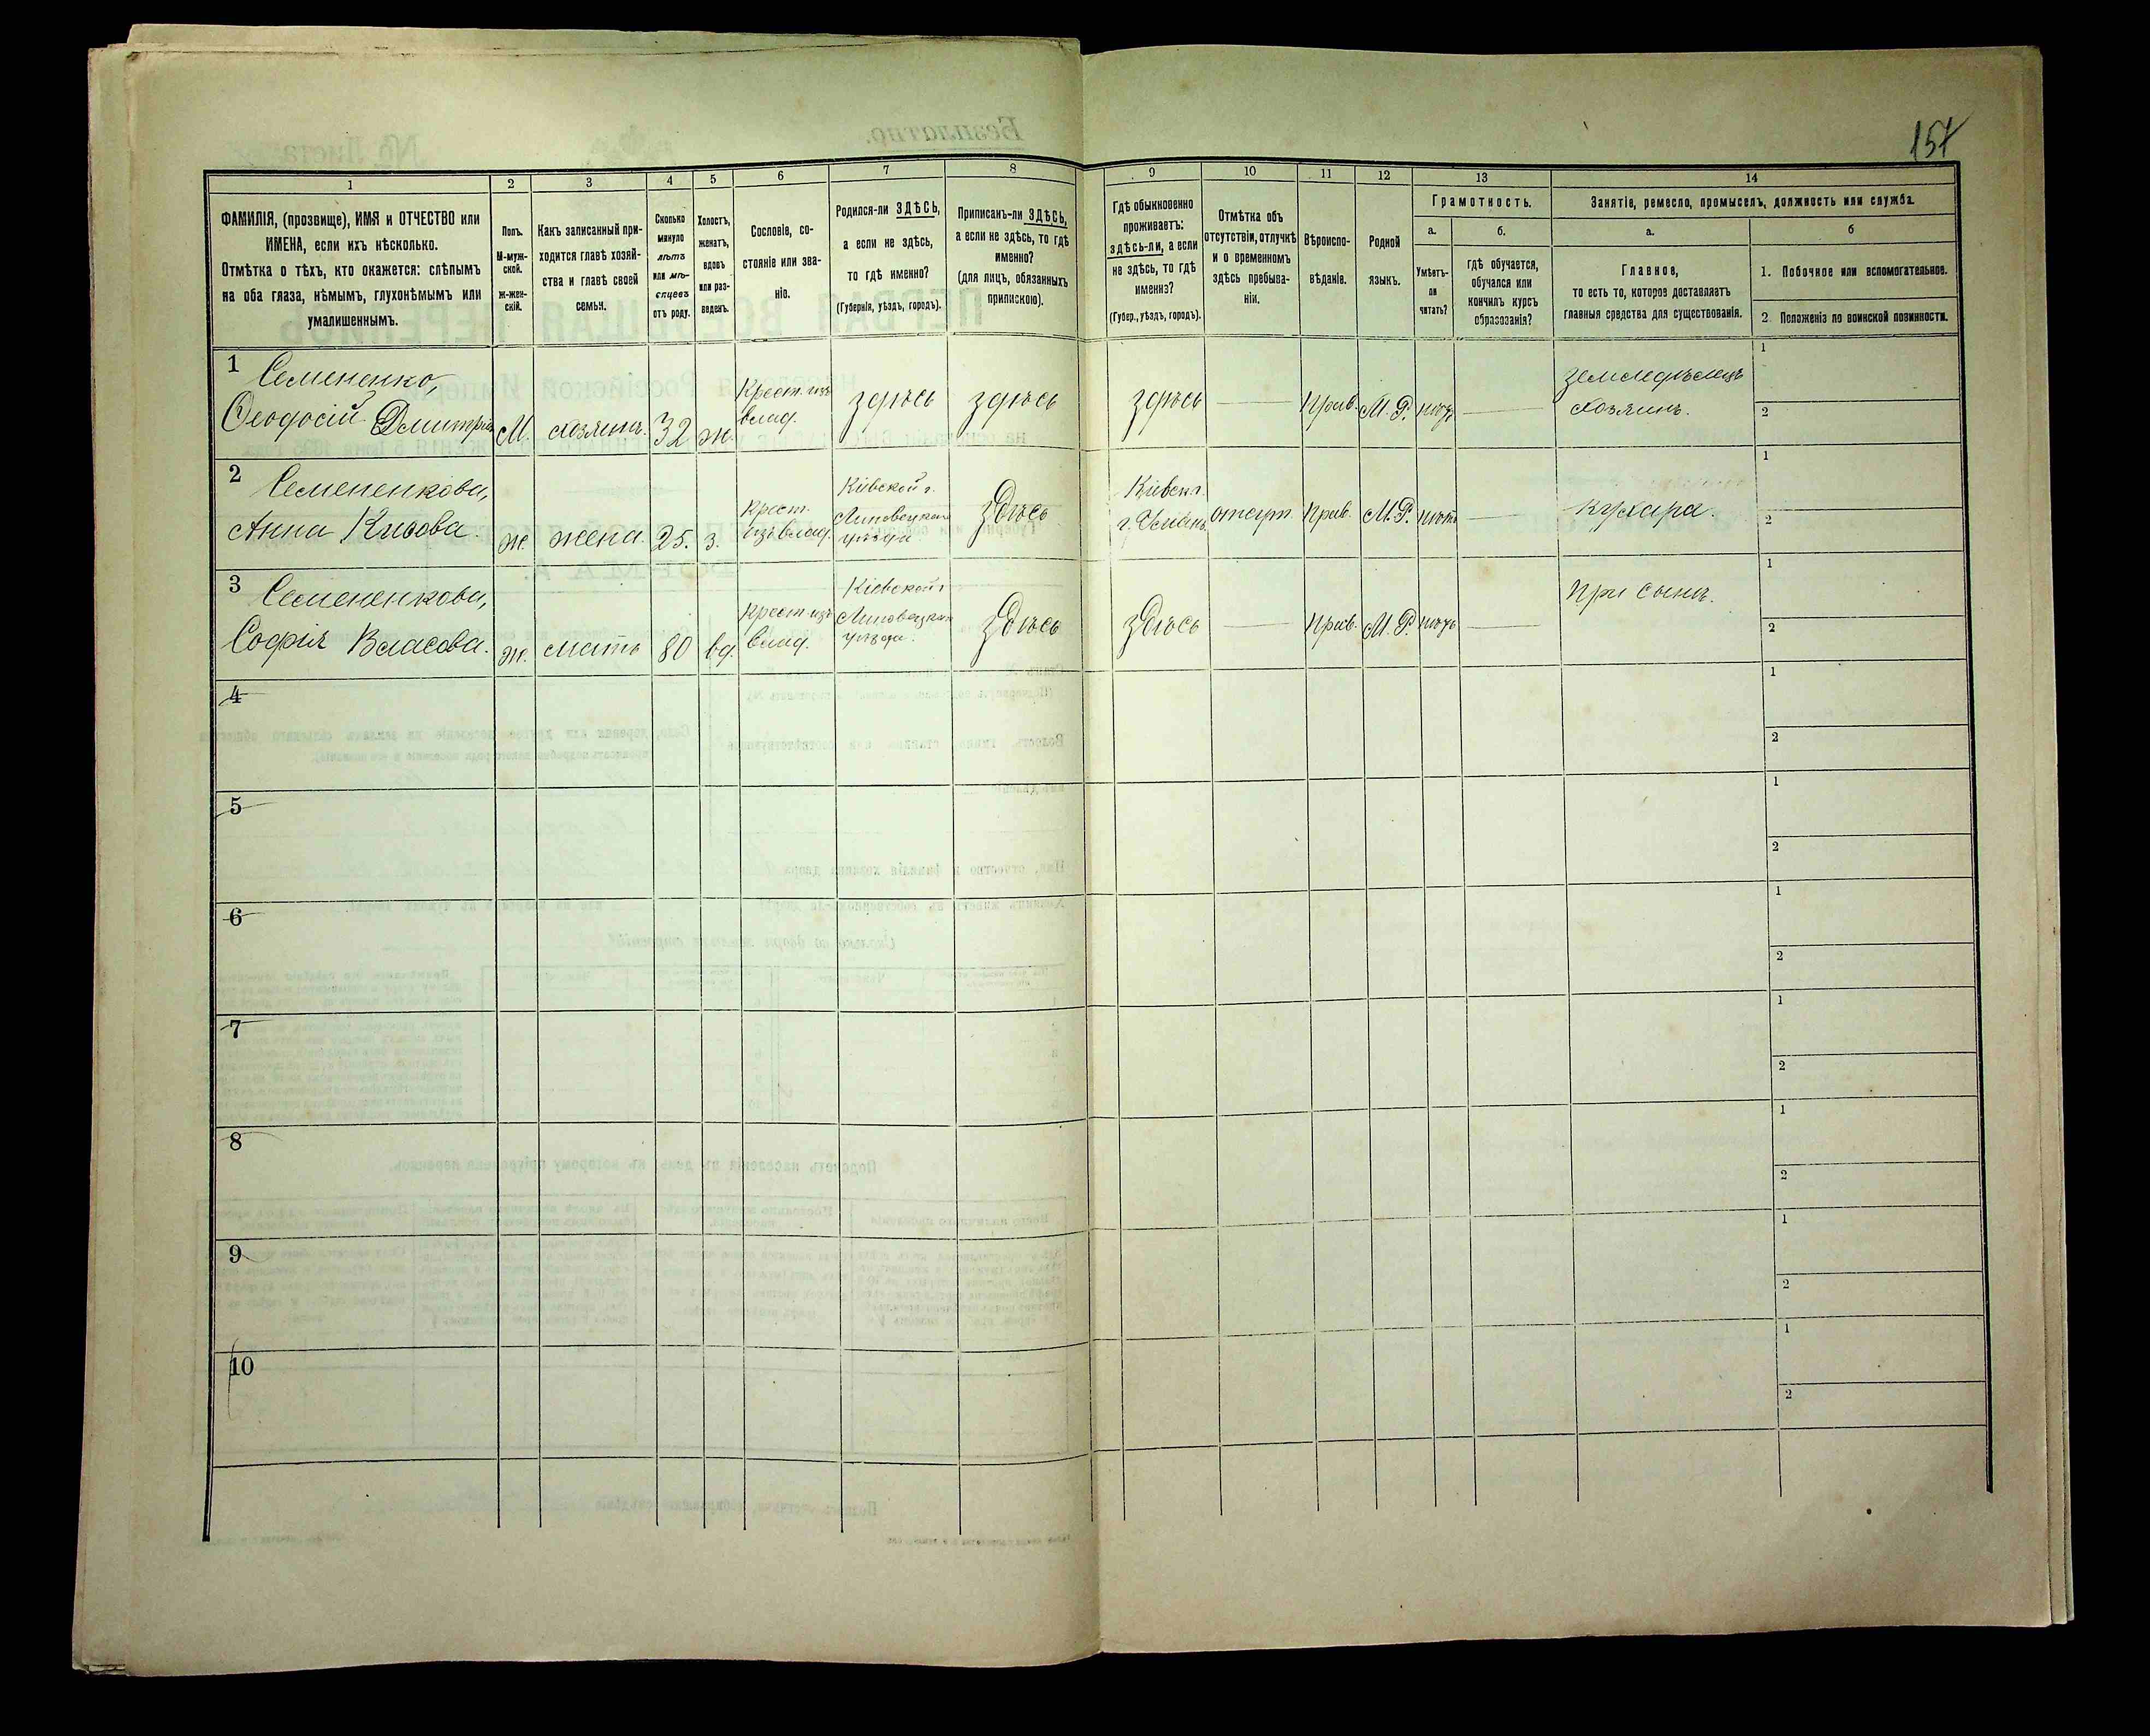 157
1 2 3 4 5 6 7 8 9 10 11 12 13 14
ФАМИЛІЯ, (прозвище), ИМЯ и ОТЧЕСТВО или
ИМЕНА, если ихъ нѣсколько.
Отмѣтка о тѣхъ, кто окажется: слѣпымъ
на оба глаза, нѣмымъ, глухонѣмымъ или
умалишеннымъ.
Полъ.
М-муж-
ской.
ж-жен-
скій.
Какъ записанный при-
ходится главѣ хозяй-
ства и главѣ своей
семьи.
Сколько
минуло
лѣтъ
или мѣ-
сяцевъ
отъ роду.
Холостъ,
женатъ,
вдовъ
или раз-
веденъ.
Сословіе, со-
стояніе или зва-
ніе.
Родился-ли ЗДѢСЬ,
а если не здѣсь,
то гдѣ именно?
(Губернія, уѣздъ, городъ).
Приписанъ-ли ЗДѢСЬ,
а если не здѣсь, то гдѣ
именно?
(для лицъ, обязанныхъ
припискою).
Гдѣ обыкновенно
проживаетъ:
здѣсь-ли, а если
не здѣсь, то гдѣ
именно?
(Губер., уѣздъ, городъ).
Отмѣтка объ
отсутствіи, отлучкѣ
и о временномъ
здѣсь пребыва-
ніи.
Вѣроиспо-
вѣданіе.
Родной
языкъ.
Грамотность.
а.
Умѣетъ-
ли
читать?
б.
гдѣ обучается,
обучался или
кончилъ курсъ
образованія?
Занятіе, ремесло, промыселъ, должность или служба.
а.
Главное,
то есть то, которое доставляетъ
главныя средства для существованія.
б
1. Побочное или вспомогательное.
2. Положеніе по воинской повинности.
1 Семененко,
Ѳеодосій Дмитріев
М. хозяинъ. 32 ж.
Крест. изъ
влад.
здѣсь здѣсь здѣсь — Прав. М. Р. нѣтъ —
Земледѣлецъ
хозяинъ.
1
2
2 Семененкова,
Анна
ж. жена. 25. з.
Крест.
изъ влад.
Кіевской г.
Липовецкаго
уѣзда
здѣсь
Кіевск. г.
г. Умань.
отсут. Прав. М. Р. нѣтъ —
кухарка.
1
2
3 Семененкова,
Софія Власова.
ж. мать 80 вд.
Крест. изъ
влад.
Кіевской г
Липовецкаго
уѣзда.
здѣсь здѣсь — Прав. М. Р. нѣтъ —
При сынѣ.
1
2
4
1
2
5
1
2
6
1
2
7
1
2
8
1
2
9
1
2
10
1
2